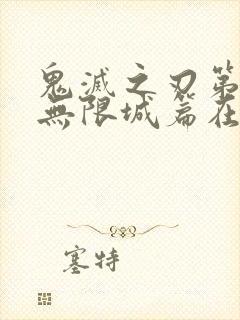 鬼滅之刃第
無限城篇在
塞特